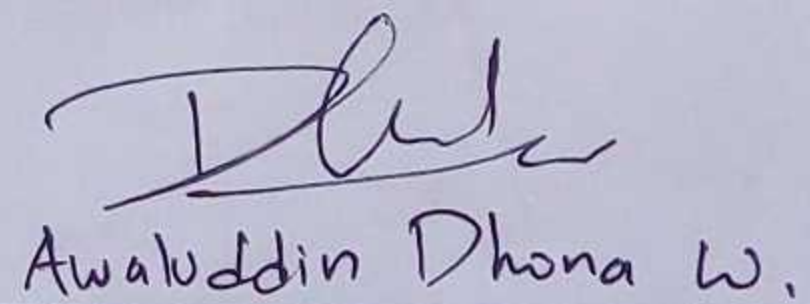 Awaluddin Dhona W.